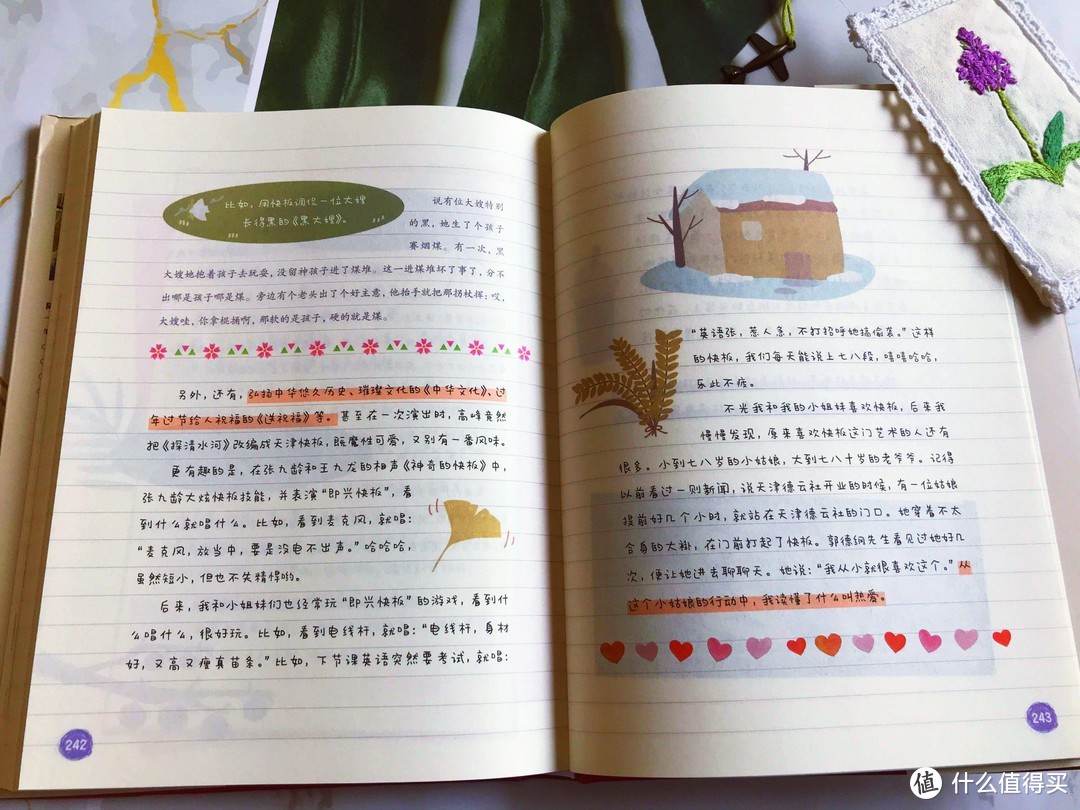 比如，用快板调侃一位大嫂
长得黑的《黑大嫂》。
说有位大嫂特别
的黑，她生了个孩子
赛烟煤。有一次，黑
大嫂她抱着孩子去玩耍，没留神孩子进了煤堆。这一进煤堆坏了事了，分不
出哪是孩子哪是煤。旁边有个老头出了个好主意，他抬手就把那拐杖挥：哎，
大嫂哇，你拿棍捅啊，那软的是孩子，硬的就是煤。
另外，还有，弘扬中华悠久历史、璀璨文化的《中华文化》、过
年过节给人祝福的《送祝福》等。甚至在一次演出时，高峰竟然
把《探清水河》改编成天津快板，既魔性可爱，又别有一番风味。
更有趣的是，在张九龄和王九龙的相声《神奇的快板》中，
张九龄大炫快板技能，并表演“即兴快板”，看
到什么就唱什么。比如，看到麦克风，就唱：
“麦克风，放当中，要是没电不出声。”哈哈哈，
虽然短小，但也不失精悍哟。
后来，我和小姐妹们也经常玩“即兴快板”的游戏，看到什
么唱什么，很好玩。比如，看到电线杆，就唱：“电线杆，身材
好，又高又瘦真苗条。”比如，下节课英语突然要考试，就唱：
242
“英语张，惹人急，不打招呼她搞偷袭。”这样
的快板，我们每天能说上七八段，嘻嘻哈哈，
乐此不疲。
不光我和我的小姐妹喜欢快板，后来我
慢慢发现，原来喜欢快板这门艺术的人还有
很多。小到七八岁的小姑娘，大到七八十岁的老爷爷。记得
以前看过一则新闻，说天津德云社开业的时候，有一位姑娘
提前好几个小时，就站在天津德云社的门口。她穿着不太
合身的大褂，在门前打起了快板。郭德纲先生看见过她好几
次，便让她进去聊聊天。她说：“我从小就很喜欢这个。”从
这个小姑娘的行动中，我读懂了什么叫热爱。
243
值 什么值得买